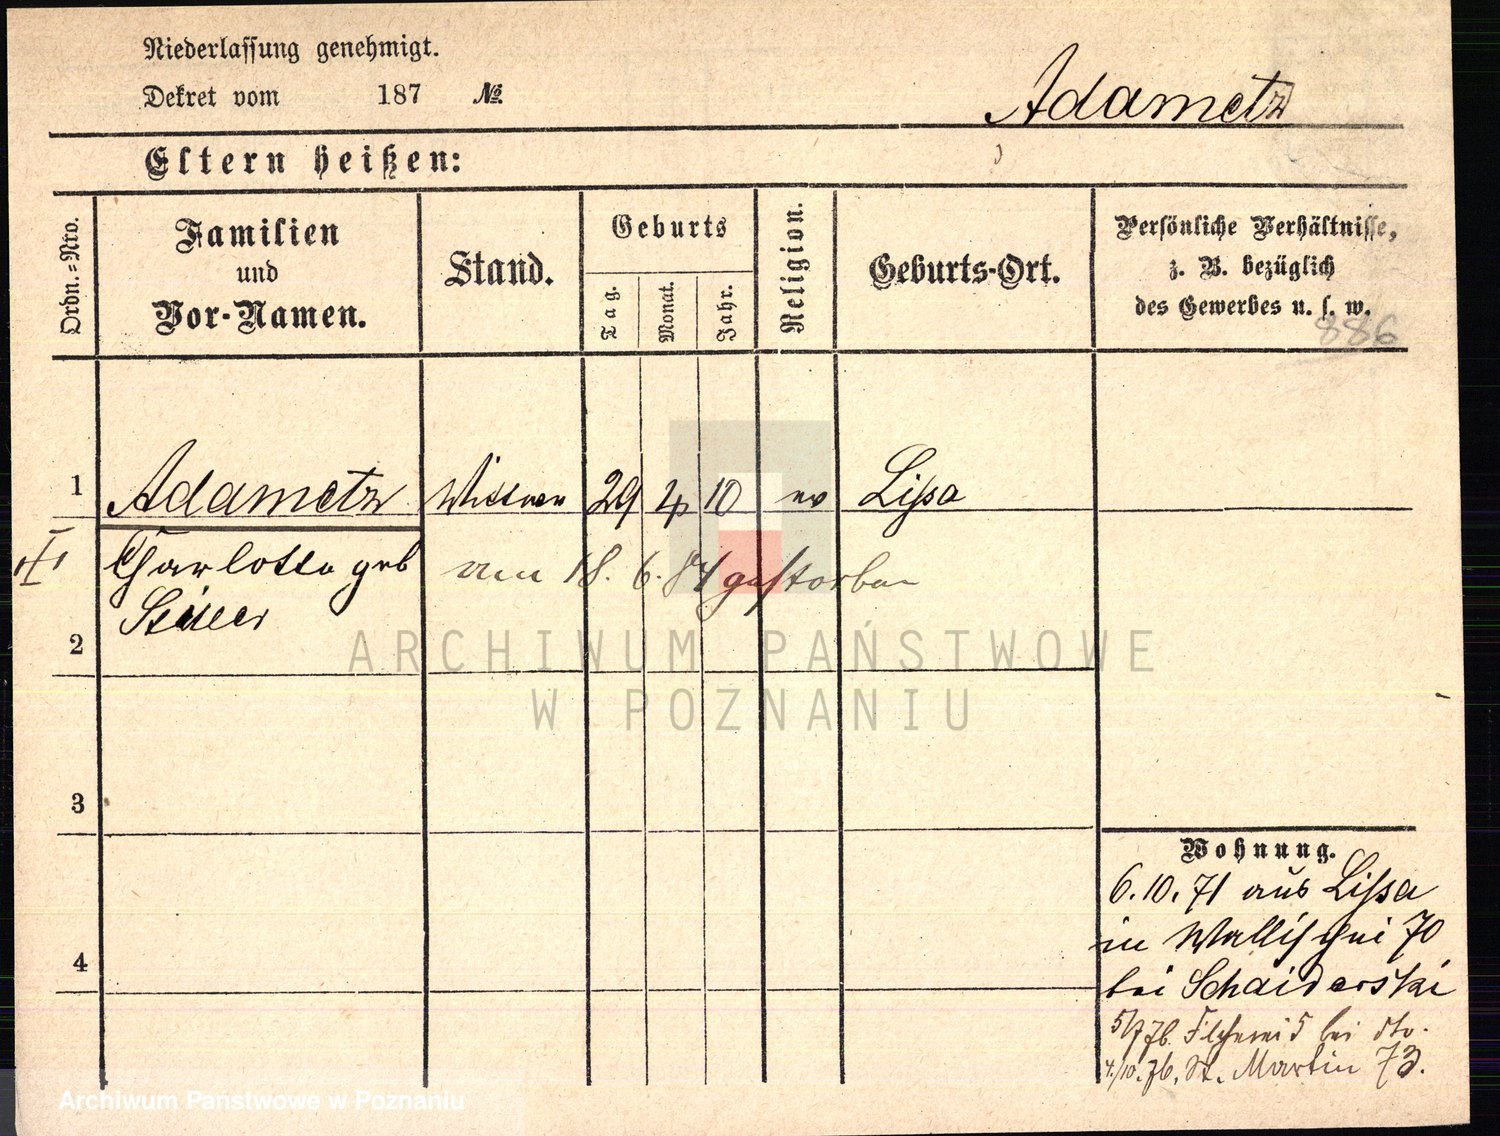 Niederlassung genehmigt.
Dekret vom 187 №
Adametz
Eltern heißen:
Ordn.=Nro.
Familien
und
Vor-Namen.
Stand.
Geburts
Tag.
Monat.
Jahr.
Religion.
Geburts-Ort.
Persönliche Verhältnisse,
z. B. bezüglich
des Gewerbes u. s. w.
886
1 Adametz Wittwe 29 4 10 ev Lissa
Charlotte geb am 18. 6. 84 gestorben
2
3
4
Wohnung.
6.10.71 aus Lissa
in Wallischei 70
bei Schaiderski
5/7 76. Fischerei 5 bei dto.
4./10. 76. St. Martin 73.
ARCHIWUM PAŃSTWOWE
W POZNANIU
Archiwum Państwowe w Poznaniu